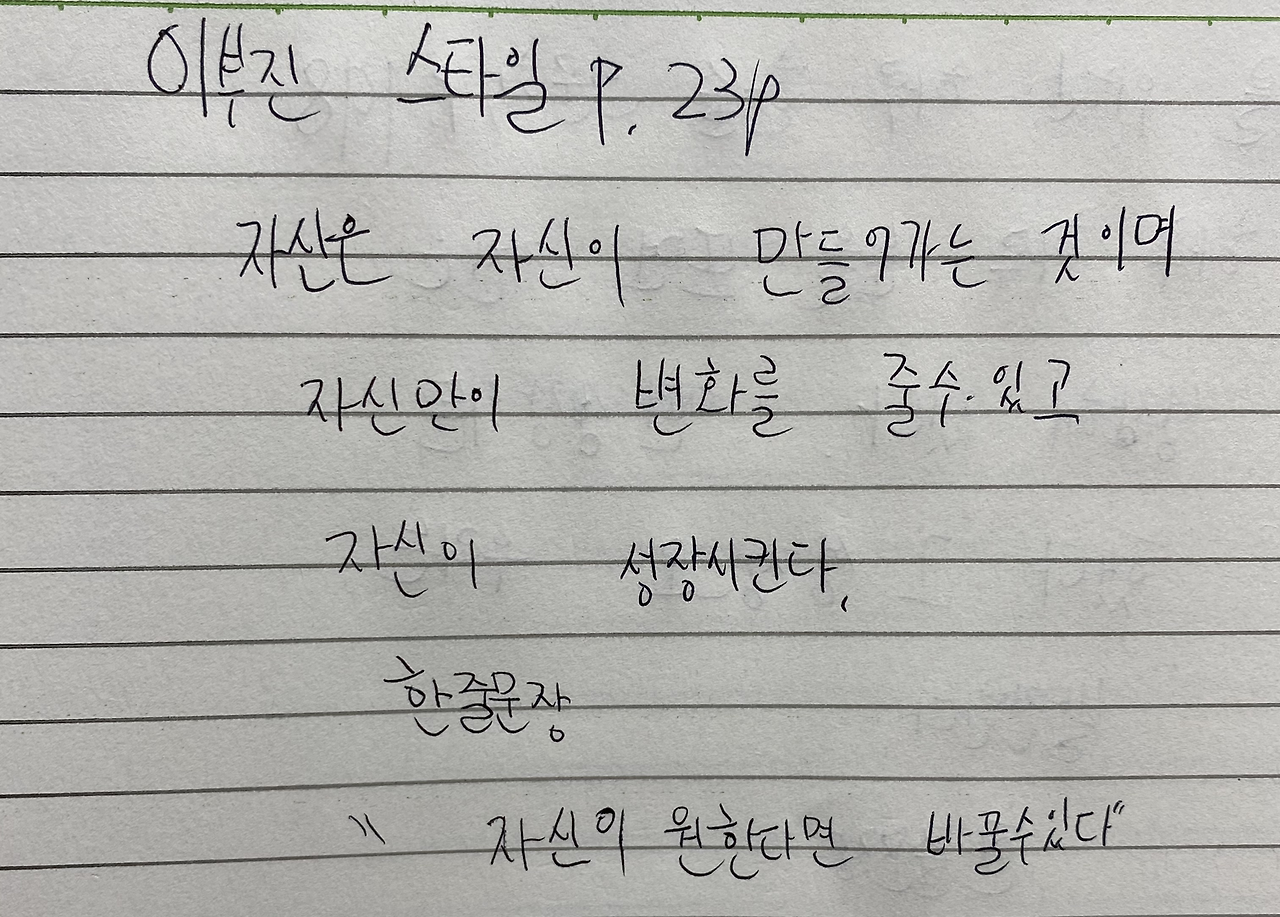 이부진 스타일 P. 23p
자산은 자신이 만들어가는 것이며
자신만이 변화를 줄수 있고
자신이 성장시킨다.
한줄문장
" 자신이 원한다면 바꿀수있다"